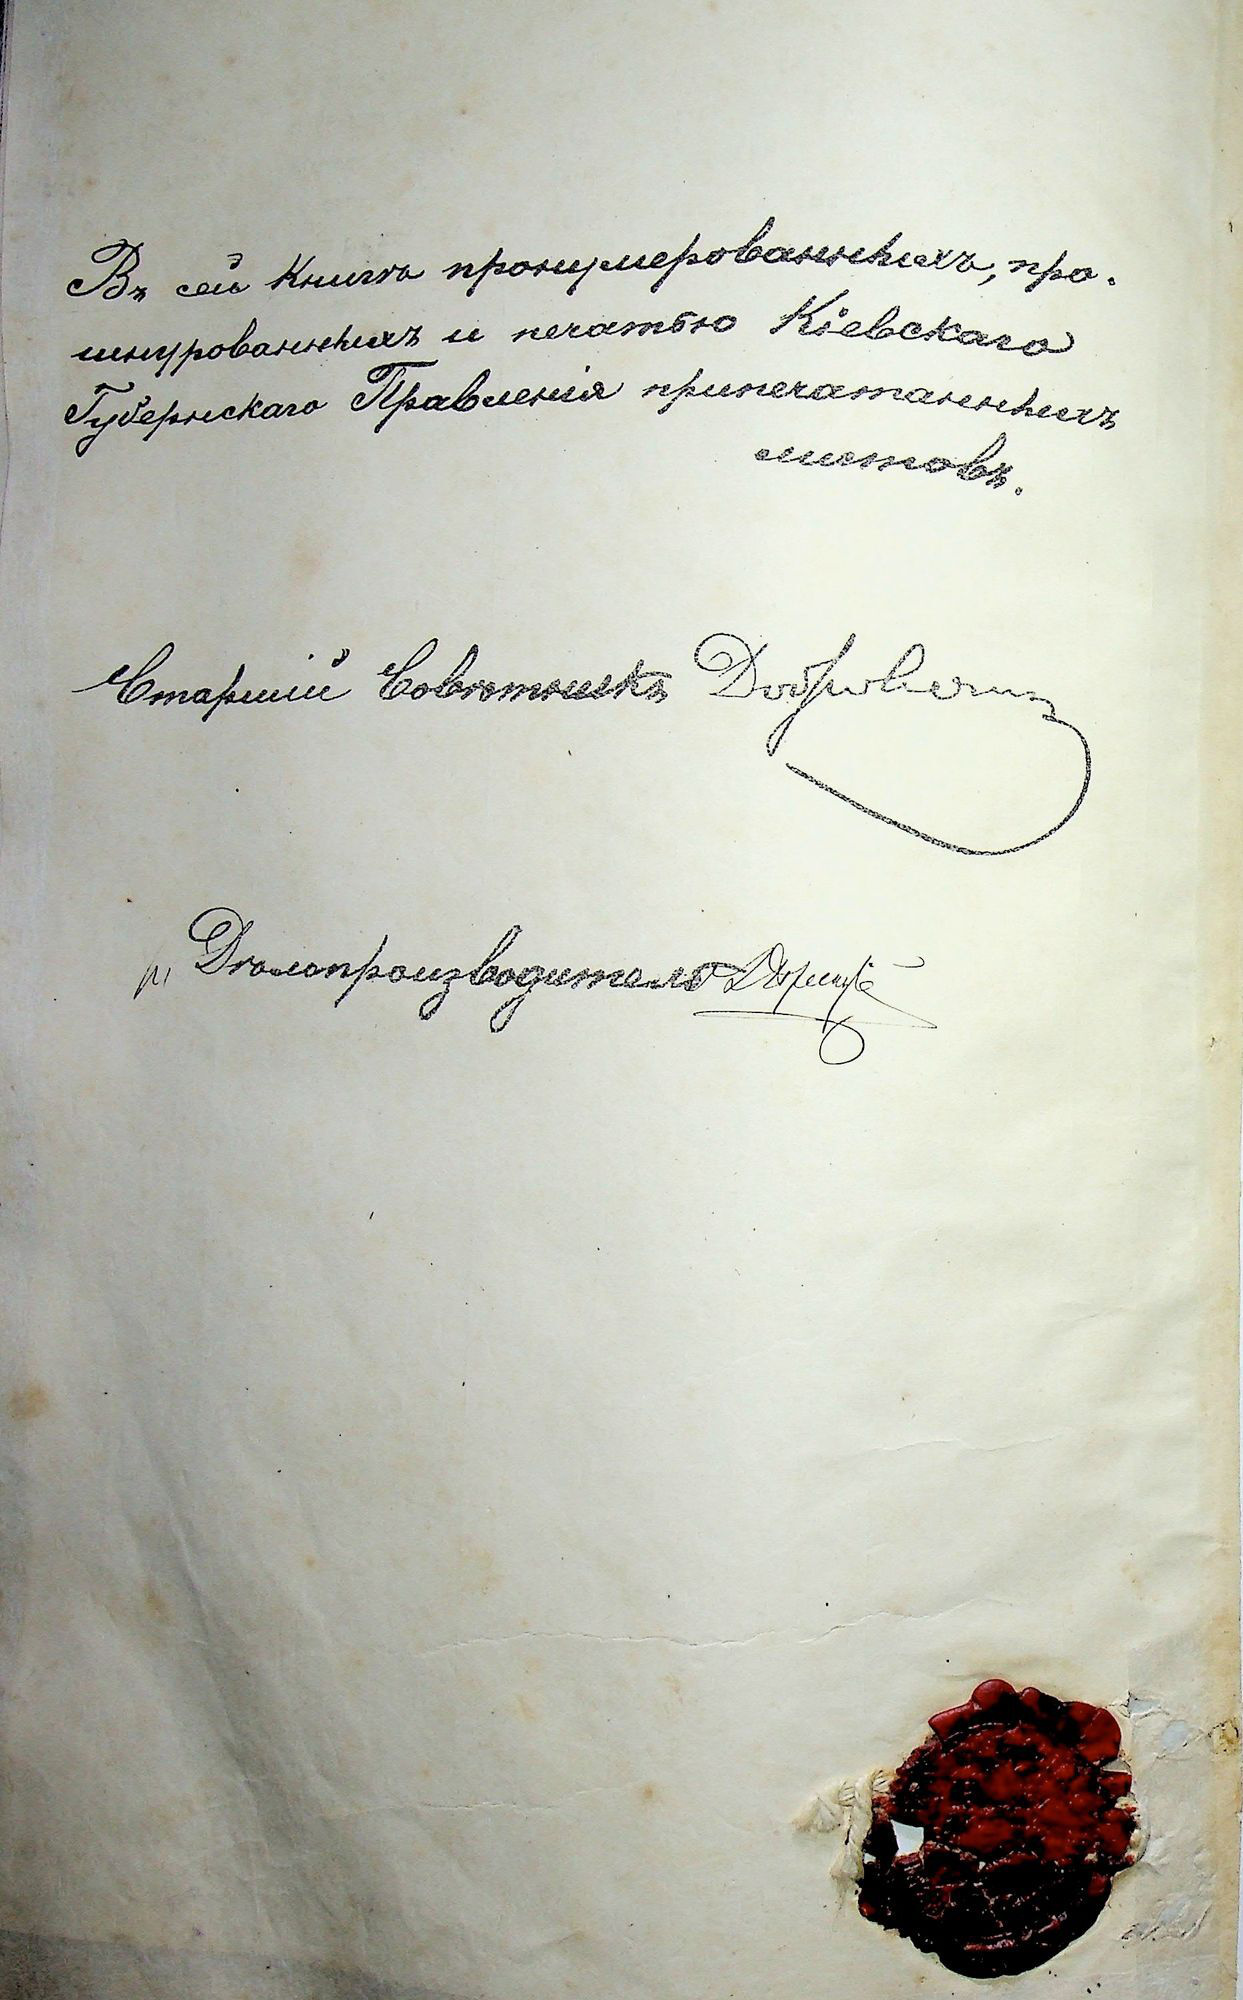 Въ сей книгѣ пронумерованныхъ, про-
шнурованныхъ и печатью Кіевскаго
Губернскаго Правленія припечатанныхъ
листовъ.
Старшій Совѣтникъ
Дѣлопроизводитель